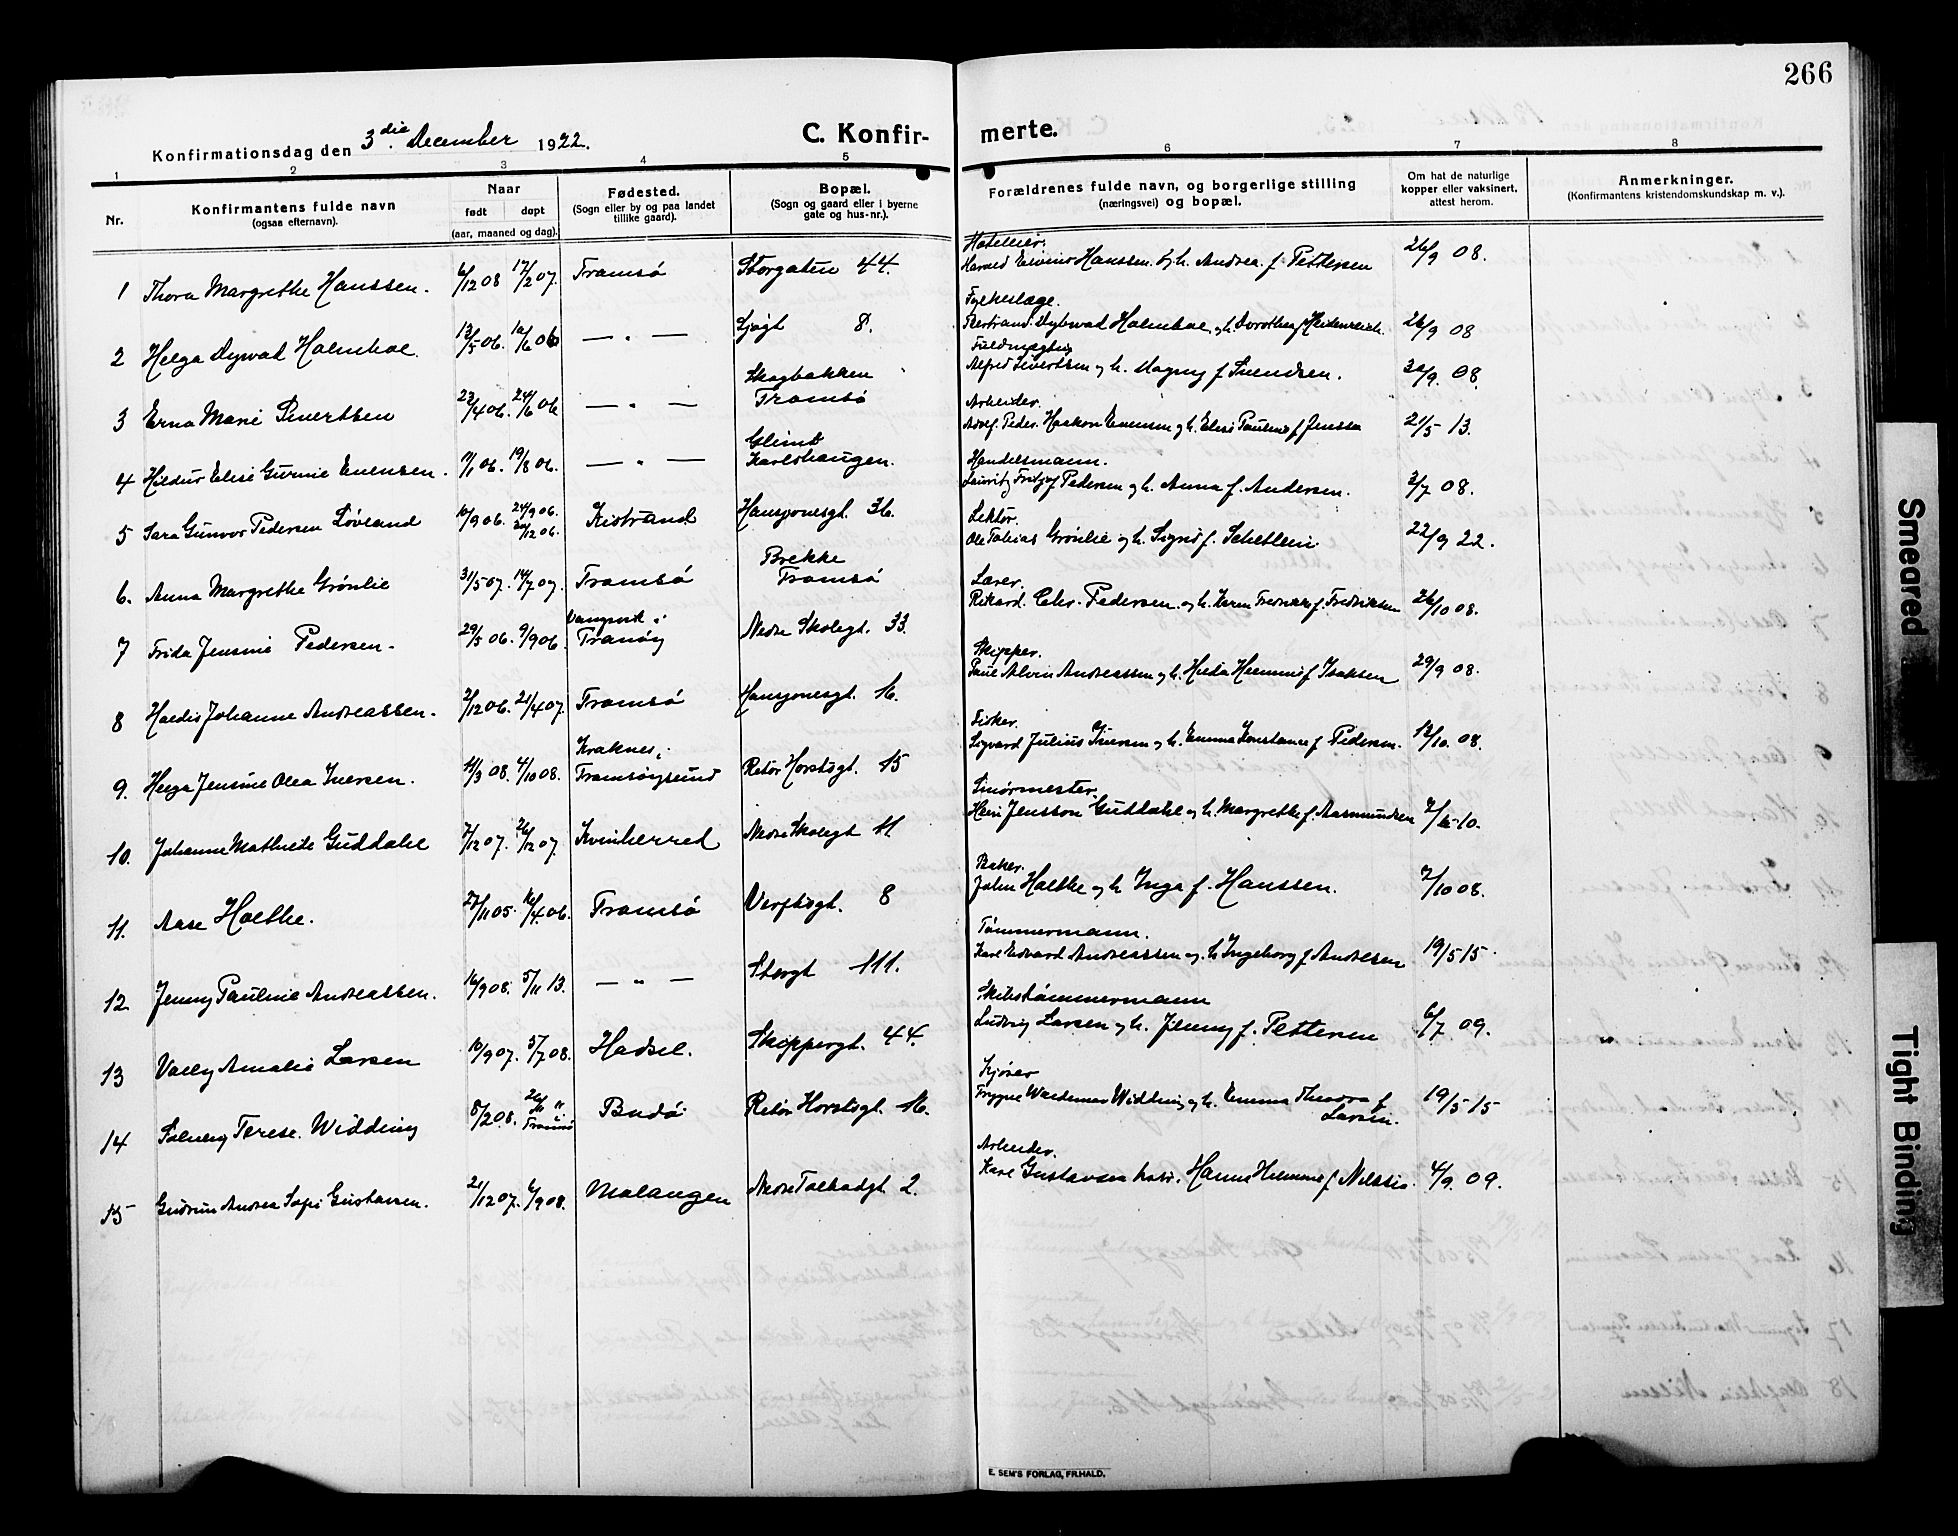 266
Konfirmationsdag den 3die December 1922.
C. Konfir-
merte.
1 2 3 4 5 6 7 8
Nr.
Konfirmantens fulde navn
(ogsaa efternavn).
Naar
født døpt
(aar, maaned og dag).
Fødested.
(Sogn eller by og paa landet
tillike gaard).
Bopæl.
(Sogn og gaard eller i byerne
gate og hus-nr.).
Forældrenes fulde navn, og borgerlige stilling
(næringsvei) og bopæl.
Om hat de naturlige
kopper eller vaksinert,
attest herom.
Anmerkninger.
(Konfirmantens kristendomskundskap m. v.).
Hoteleier.
1 Thora Margrethe Hanssen. 17/2 07. Tromsø Storgaten 44. Hanssen og h. Andrea f. Pettersen 26/9 08.
Fylkeslæge.
2 Helga Dyrwad Holmboe 13/5 06. 10/6 06 — " — Sjøgt 8. Bertrand Dybwad Holmboe og h. Dorothea f Heidenreich 26/9 08
Fuldmægtig
3 Erna Marie Sivertsen 23/4 06. 24/6 06 — " — Skogbakken Tromsø Alfred Sivertsen og h. Magny f Svendsen. 30/9. 08.
Arbeider.
4 Hildur Elise Evensen. 11/1 06. 19/8 06. — " — Karlshaugen. Peder Haakon Evensen og h. Elise Pauline f Jenssen 21/5 13.
Handelsmann.
5 Sara Gunvor Pedersen Løvland 10/9 06. 24/9 06. 30/12 06. Kistrand Hansjonesgt. 36. Lauritz Fritjof Pedersen og h. Anna f. Andersen. 2/7 08.
Lektor.
6. Anna Margrethe Grønlie 31/5 07. 14/7 07. Tromsø Brekke Tromsø Ole Tobias Grønlie og h. Sigrid f. Schetlein 22/9 22.
Lærer.
7 Frida Jensine Pedersen. 29/5 06. 9/9 06. Vangsvik i Tranøy Nedre Skolegt. 33. Rikard Chr. Pedersen og h. Karen Fredrikke f Fredriksen 26/10 08.
Skipper.
8 Haldis Johanne Andreassen. 2/12 06. 21/4 07. Tromsø Hansjonesgt. 16. Paul Alvin Andreassen og h. Hilda f Isaksen 29/9 08.
Fisker.
9. Helga Jensine Olea Iversen. 11/3 08. 4/10 08. Kraknes, Tromsøysund Rektor Horstsgt. 15 Sigvard Julius Iversen og h. Emma Konstanse f Pedersen. 12/10. 08.
10. Johanne Mathilde Guddahl 7/12 07. 26/12 07. Kvinherred Nedre Skolegt 11. Jensson Guddahl og h. Margrethe f. Aasmundsen
Baker.
11. Aase Holtke. 27/11 05. 16/4 06. Tromsø Verftsgt. 8 John Holtke og h Inga f. Hanssen. 7/10 08.
Tømmermann.
12 Jenny Pauline Andreassen. 16/9 08. 5/11 13. — " — Storgt 111. Karl Edvard Andreassen og h Ingeborg f Andresen 19/5 15.
Skibstømmermann
13 Vally Amalie Larsen 10/9 07. 5/7 08. Hadsel. Skippergt. 44. Ludvig Larsen og h. Jenny f. Pettersen 6/7 09.
Kjører
14 Solveig Terese Widding 8/2 08. Tromsø Bodø Rektor Horstsgt. 16. Trygve Waldemar Widding og h. Emma Theodora f Larsen. 19/5 15
Arbeider.
15 Gudrun Andrea Sofie Gustavsen. 21/12 07. 6/9 08. Malangen Nedre Tolbodgt 2. Karl Gustavsen Hanna f. Nilssen. 4/9. 09.
E. SEM'S FORLAG, FR.HALD.
Smeared
Tight Binding